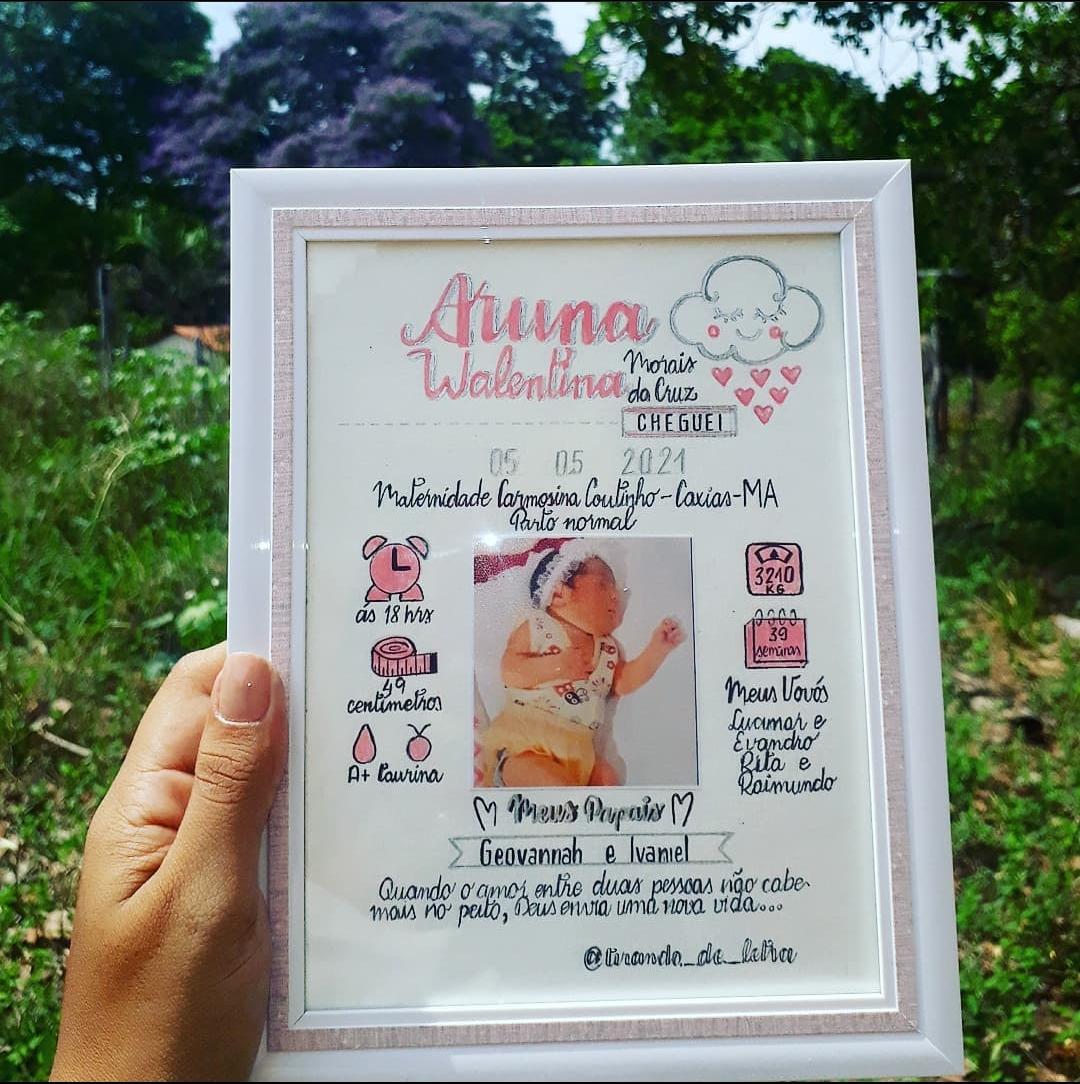 Aruna
Walentina
Morais
da Cruz
CHEGUEI
05 05 2021
Maternidade Carmosina Coutinho-Caxias-MA
Parto normal
ás 18 hrs
49
centímetros
A+ Paurina
3210
KG
39
semanas
Meus Vovós
Lucimar e
Evandro
Rita e
Raimundo
Meus Papais
Geovannah e Ivaniel
Quando o amor entre duas pessoas não cabe
mais no peito, Deus envia uma nova vida...